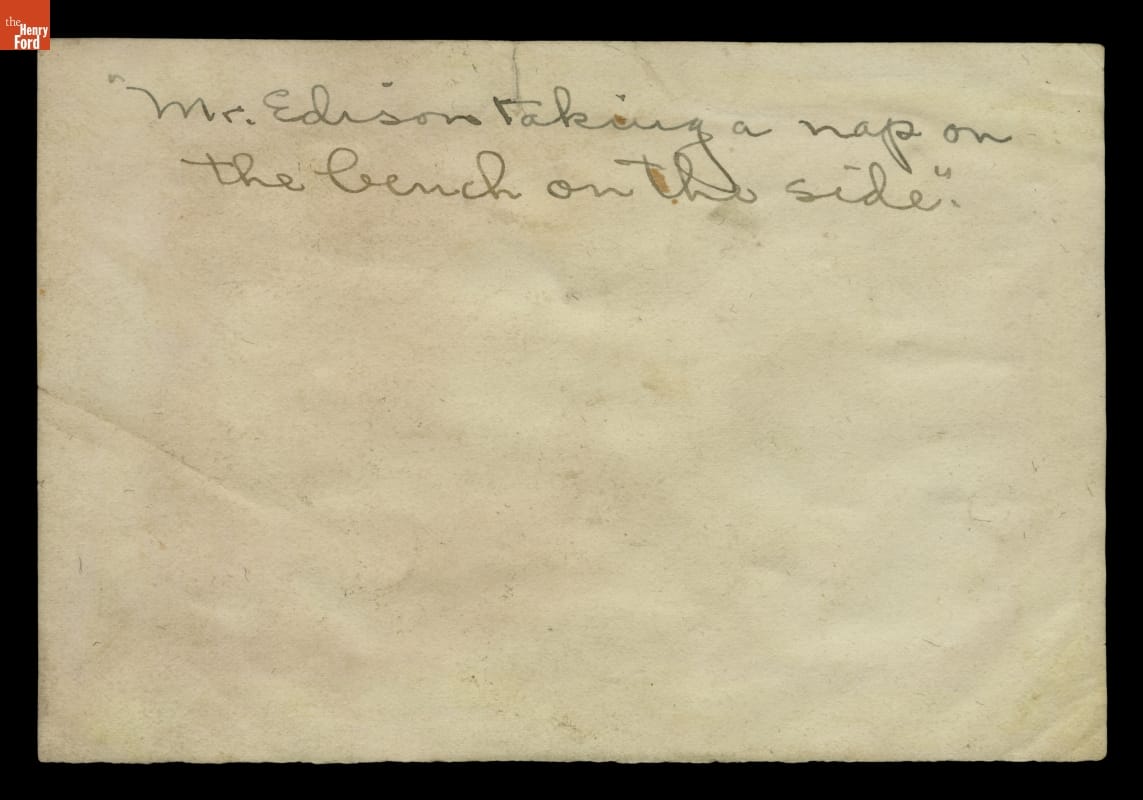 the
Henry
Ford
"Mr. Edison taking a nap on
the bench on the side".